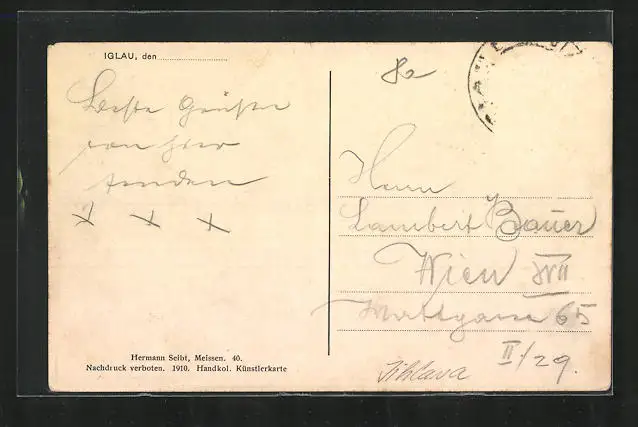 IGLAU, den
8a
Beste Grüsse
von hier
senden
x x x
Herrn
Lambert Bauer
Wien XVII
65
II/29.
Jihlava
Hermann Seibt, Meissen. 40.
Nachdruck verboten. 1910. Handkol. Künstlerkarte